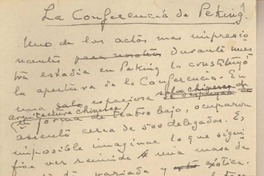 La Conferencia de Peking
Uno de los actos mas impresio
nantes para nosotros durante mi
estadia en Peking, lo constituyó
la apertura de la Conferencia. En
una sala espaciosa
arquitectura chinesca
en forma de teatro bajo, ocuparon
asiento cerca de 500 delegados. Es
imposible imaginar lo que signi
fica ver reunida a una masa de
variada y exótica.